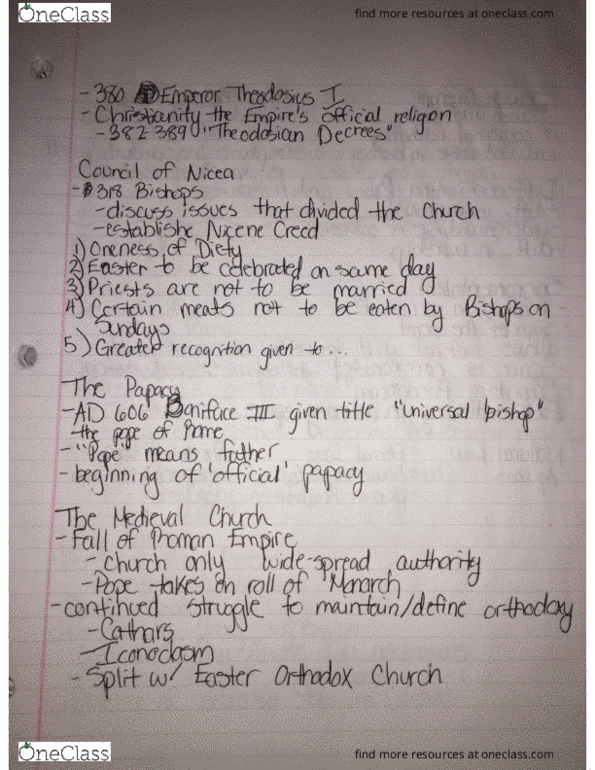 OneClass
find more resources at oneclass.com
- 380 Emperor Theodosius I
- Christianity the Empire's official religon
- 382-389 "Theodosian Decrees"
Council of Nicea
- 318 Bishops
- discuss issues that divided the Church
- establishe Nicene Creed
1) Oneness of Diety
2) Easter to be celebrated on same day
3) Priests are not to be married
4) Certain meats not to be eaten by Bishops on
Sundays
5) Greater recognition given to ...
The Papacy
- AD 606 Boniface III given title "universal bishop"
- the pope of Rome
- "Pope" means futher
- beginning of 'official' papacy
The Medieval Church
- Fall of Roman Empire
- Church only wide-spread authority
- Pope takes on roll of Monarch
- continued struggle to maintain/define orthodoxy
- Cathars
- Iconoclasm
- Split w/ Easter Orthodox Church
OneClass
find more resources at oneclass.com